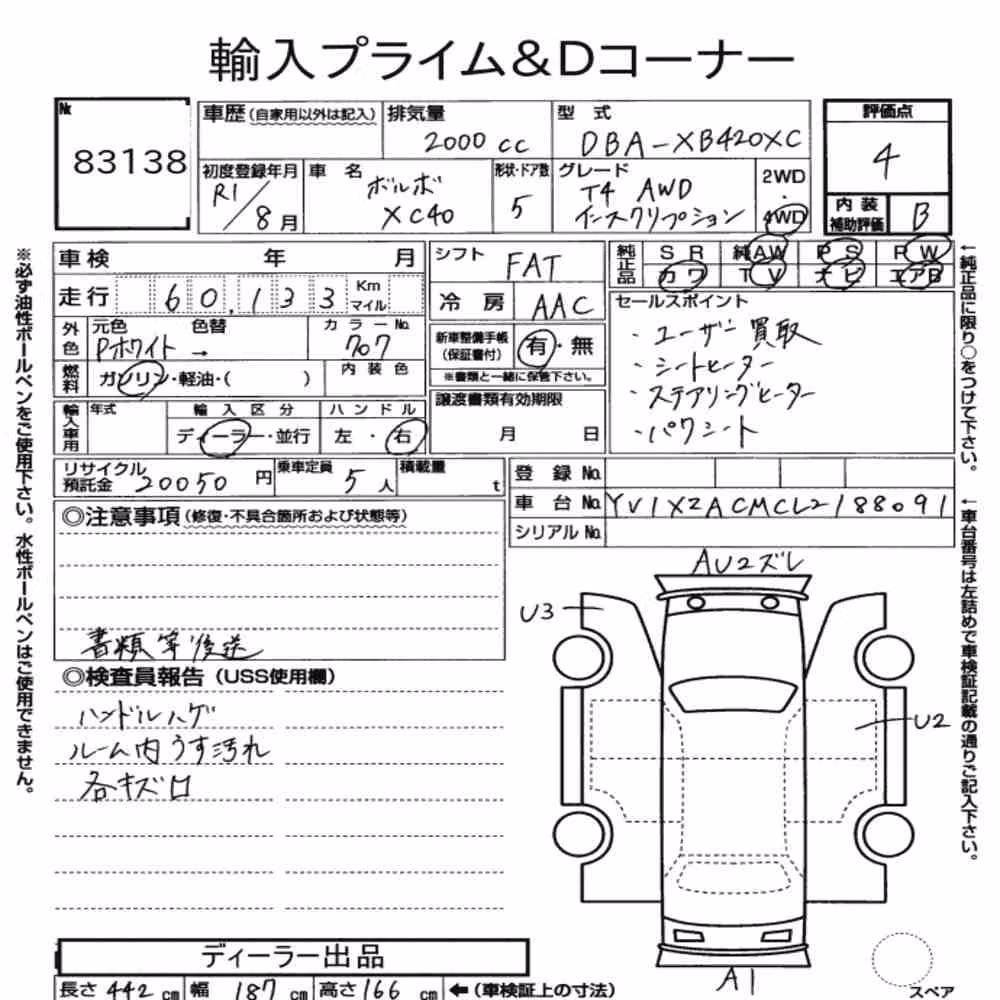 輸入プライム&Dコーナー
№ 83138
車歴(自家用以外は記入)
排気量 2000 cc
型式 DBA-XB420XC
評価点 4
初度登録年月 R1/8月
車名 ボルボ XC40
形状・ドア数 5
グレード T4 AWD インスクリプション
2WD・4WD
内装補助評価 B
車検 年 月
走行 60,133 Km マイル
シフト FAT
冷房 AAC
純正品 SR 純AW PS PW
カワ TV ナビ エアB
外色 元色 Pホワイト → 色替
カラーNo. 707
燃料 ガソリン・軽油・( )
内装色
新車整備手帳(保証書付) 有・無
※書類と一緒に保管下さい。
セールスポイント
・ユーザー買取
・シートヒーター
・ステアリングヒーター
・パワシート
輸入車用 年式
輸入区分 ディーラー・並行
ハンドル 左・右
譲渡書類有効期限 月 日
リサイクル預託金 20050円
乗車定員 5人
積載量 t
登録No.
車台No. YV1XZACMCL2188091
シリアルNo.
◎注意事項(修復・不具合箇所および状態等)
書類等後送
◎検査員報告(USS使用欄)
ハンドルハゲ
ルーム内うす汚れ
各キズロ
AU2ズレ
U3
U2
A1
スペア
ディーラー出品
長さ 442 cm 幅 187 cm 高さ 166 cm ←(車検証上の寸法)
※必ず油性ボールペンをご使用下さい。水性ボールペンはご使用できません。
←純正品に限り○をつけて下さい。
←車台番号は左詰めで車検証記載の通りご記入下さい。